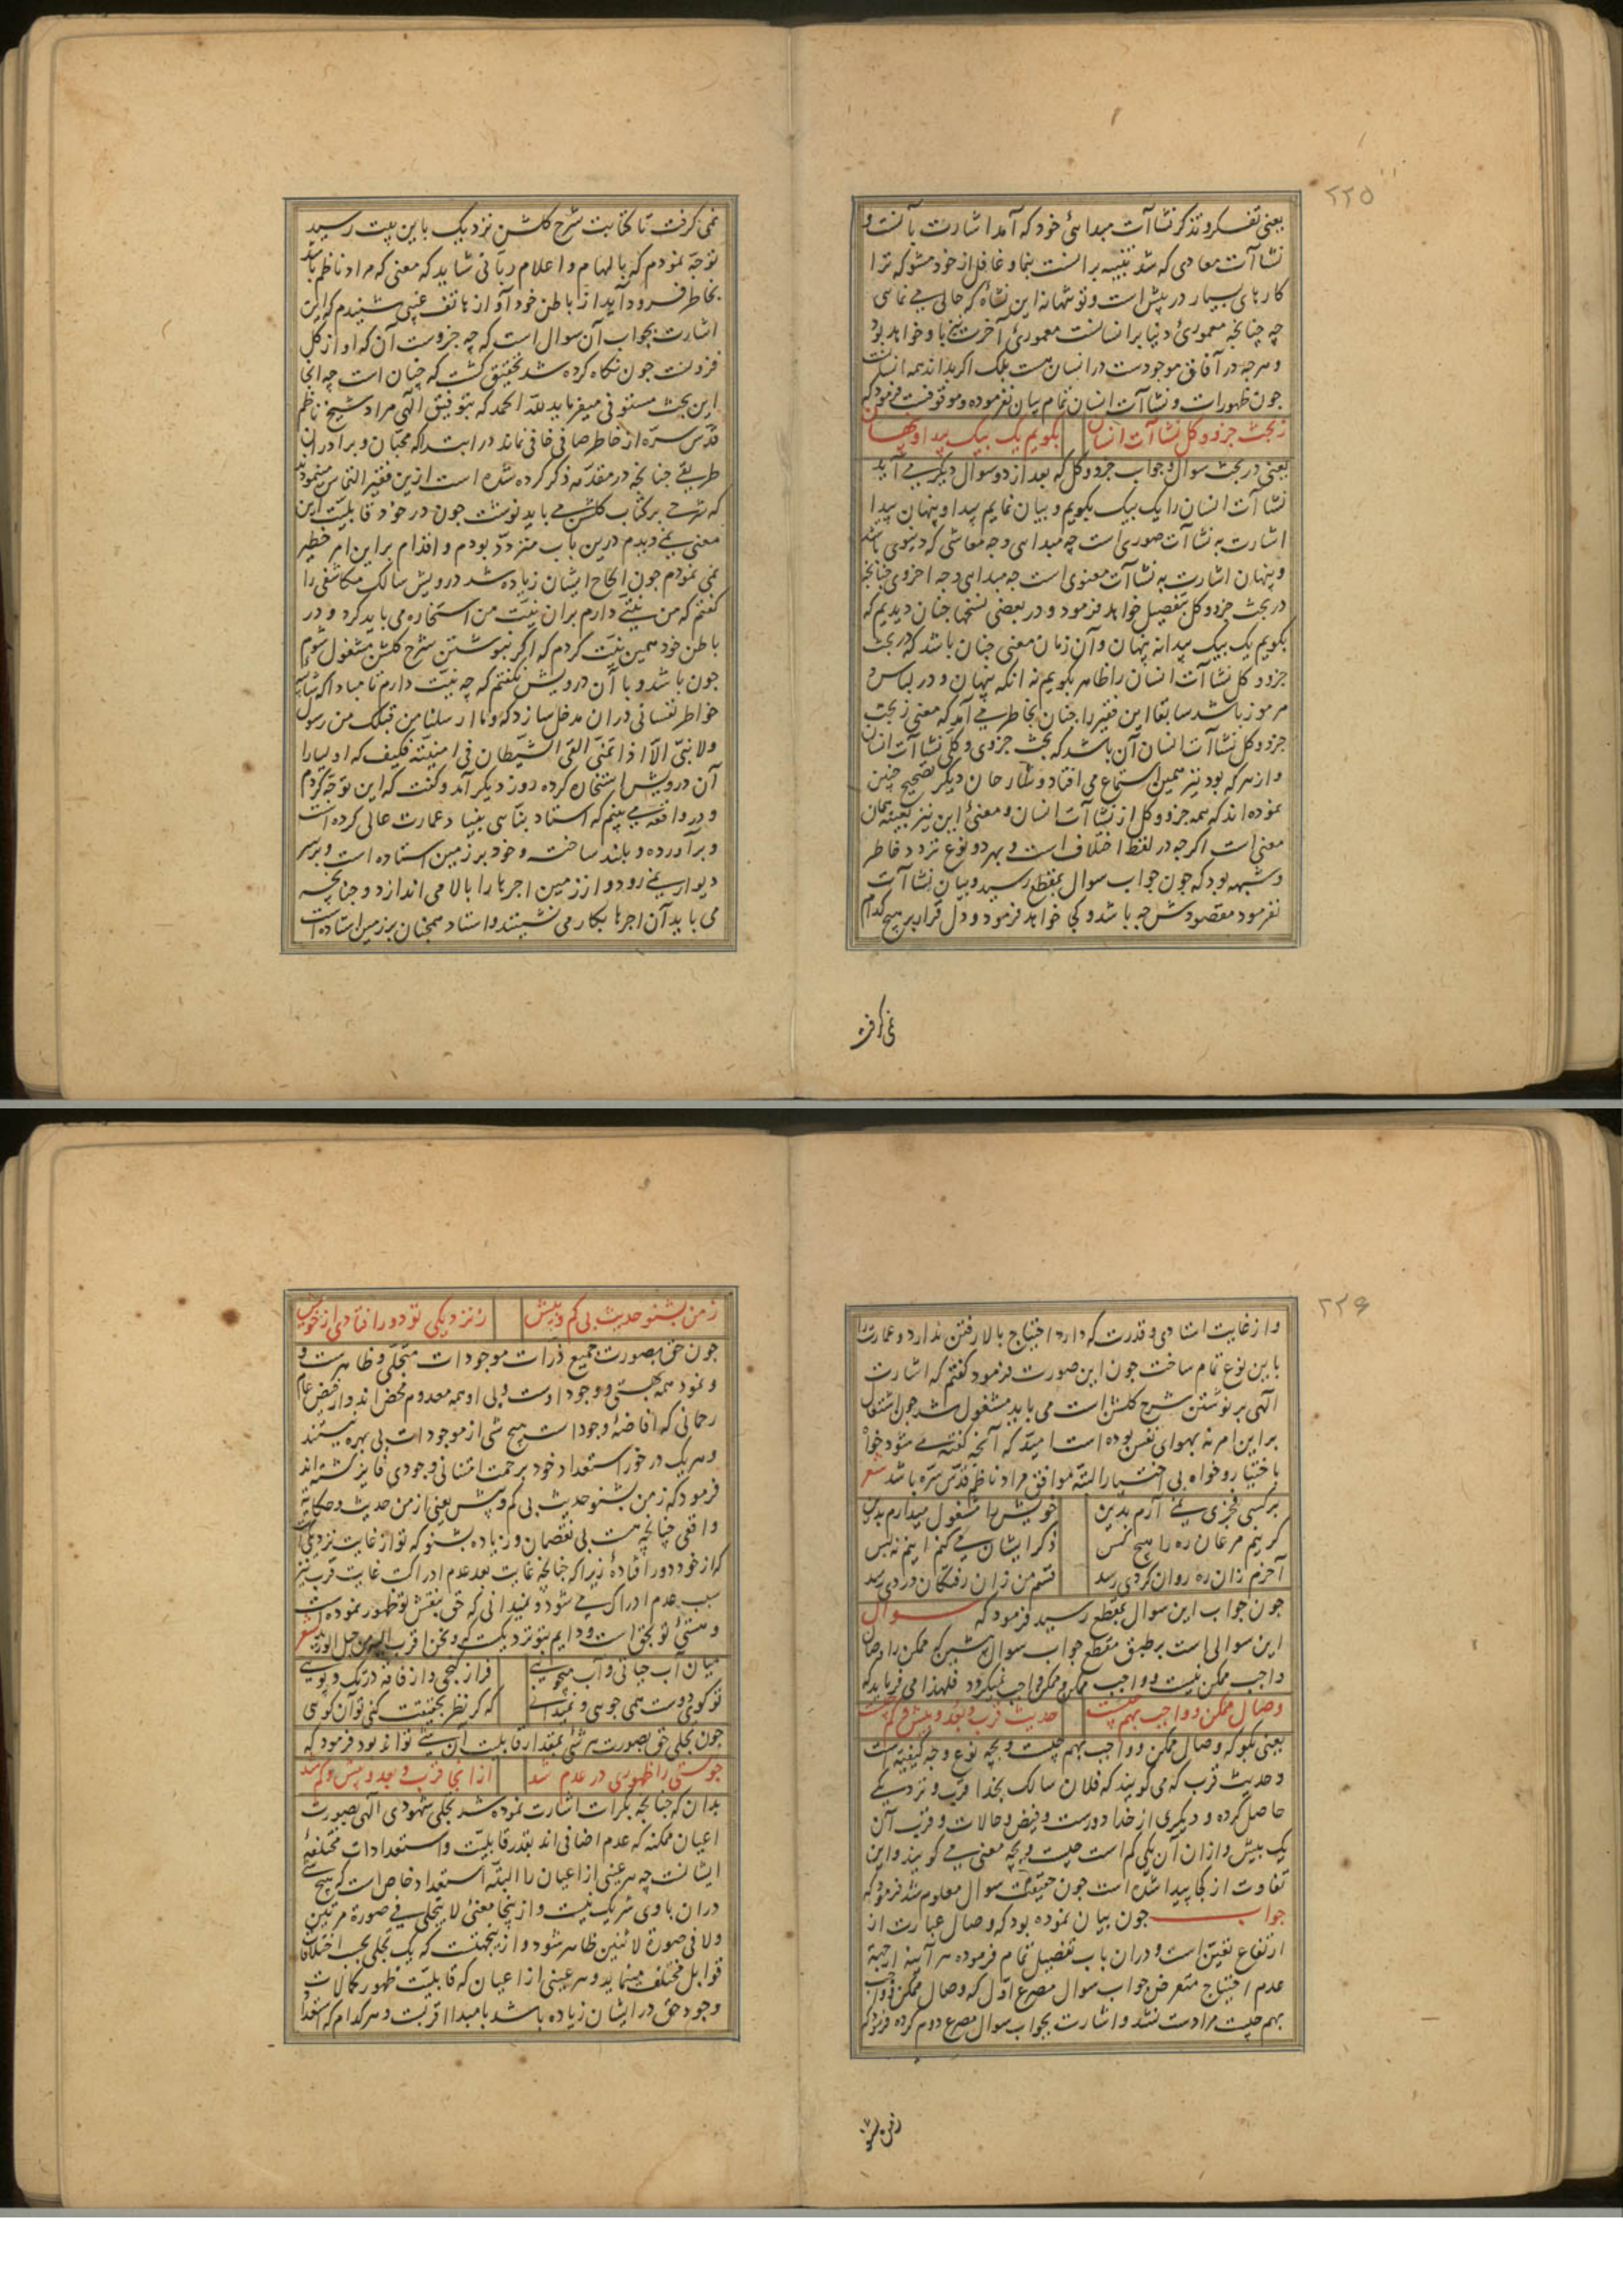 ۲۲۵
یعنی تفکر و تذکر نشاآت مبدائی خود که آمد اشارت بآنست و
نشاآت معادی که شد تنبیه برانست بنما و غافل از خود مشو که ترا
کارهای بسیار در پیش است و تو تنها نه این نشاهٔ که حالی می نمائی
چه چنانچه معموری دنیا بر انسانست معموری آخرت نیز باو خواهد بود
و هرچه در آفاق موجودست در انسان هست بلک اکر بداند همه انسانست
جون ظهورات و نشاآت انسان تمام بیان نفرموده و موقوفست فرمود که
ز بحث جزو و کل نشاآت انسان بکویم یک بیک پیدا و پنهان
یعنی در بحث سوال و جواب جزو و کل که بعد از دو سوال دیکر می آید
نشاآت انسان را یک بیک بکویم و بیان نمایم پیدا و پنهان پیدا
اشارت به نشاآت صوری است چه مبدایی و چه معاشی که دنیوی باشد
و پنهان اشارت به نشاآت معنوی است چه مبدایی و چه اخروی چنانچه
در بحث جزو و کل بتفصیل خواهد فرمود و در بعضی نسخها چنان دیدیم که
بکویم یک بیک پیدا نه پنهان و آن زمان معنی چنان باشد که در بحث
جزو و کل نشاآت انسان را ظاهر بکویم نه انکه پنهان و در لباس و
مرموز باشد سابقا این فقیر را چنان بخاطر می آمد که معنی ز بحث
جزو و کل نشاآت انسان آن باشد که بحث جزوی و کلی نشاآت انسان
و از هر که بود نیز همین استماع می افتاد و شارحان دیکر تصحیح چنین
نموده اند که همه جزو و کل از نشاآت انسان و معنی این نیز بعینه همان
معنی است اکرچه در لفظ اختلاف است و بهر دو نوع تردد خاطر
و شبهه بود که جون جواب سوال بمقطع رسید و بیان نشاآت
نفرمود مقصودش چه باشد و کی خواهد فرمود و دل قرار بر هیچ کدام
نمی کرفت
نمی کرفت تا کتابت شرح کلشن نزدیک باین بیت رسید
توجه نمودم که بالهام و اعلام ربانی شاید که معنی که مراد ناظم باشد
بخاطر فرود آید از باطن خود آواز هاتف غیبی شنیدم که این
اشارت بجواب آن سوال است که چه جزوست آن که او از کل
فزونست جون نکاه کرده شد تحقیق کشت که چنان است چه انجا
این بحث مستوفی میفرماید لله الحمد که بتوفیق الهی مراد شیخ ناظم
قدس سره از خاطر صافی خافی نماند در ابتدا که محبان و برادران
طریقی چنانچه در مقدمه ذکر کرده شده است ازین فقیر التماس مینمودند
که شرحی بر کتاب کلشن می باید نوشت جون در خود قابلیت این
معنی نمی دیدم درین باب متردد بودم و اقدام براین امر خطیر
نمی نمودم جون الحاح ایشان زیاده شد درویش سالک مکاشفی را
کفتم که من نیتی دارم بران نیت من استخاره می باید کرد و در
باطن خود همین نیت کردم که اکر بنوشتن شرح کلشن مشغول شوم
جون باشد و با آن درویش نکفتم که چه نیت دارم تا مبادا که شائبه
خواطر نفسانی دران مدخل سازد که وما ارسلنا من قبلک من رسول
ولا نبی الا اذا تمنی القی الشیطان فی امنیته فکیف که اولیا را
آن درویش استخاره کرده روز دیکر آمد و کفت که این توجه کردم
و در واقعه می بینم که استاد بنایی بنیاد عمارت عالی کرده است
و برآورده و بلند ساخته و خود بر زمین استاده است و بر سر
دیوار نمی رود و از زمین اجرها را بالا می اندازد و چنانچه
می باید آن اجرها بکار می نشینند و استاد همچنان بر زمین استاده است
۲۲۶
و از غایت استادی و قدرت که دارد احتیاج بالا رفتن ندارد و عمارت را
باین نوع تمام ساخت جون این صورت فرمود کفتم که اشارت
الهی بر نوشتن شرح کلشن است می باید مشغول شد جون اشتغال
براین امر نه بهوای نفس بوده است امید که آنچه کفته می شود خواه
باختیار و خواه بی اختیار البته موافق مراد ناظم قدس سره باشد شعر
بر کسی فخری نمی آرم بدین خویش را مشغول میدارم بدین
کر نیم مرغان ره را هیچ کس ذکر ایشان می کنم اینم نه بس
آخرم زان ره روان کردی رسد قسم من زان رفتکان دردی رسد
جون جواب این سوال بمقطع رسید فرمود که سوال
این سوالی است بر طبق مقطع جواب سوال پیشین که ممکن را وصال
واجب ممکن نیست و واجب ممکن و ممکن واجب نمیکردد فلهذا می فرماید که
وصال ممکن و واجب بهم چیست حدیث قرب و بعد و بیش و کم چیست
یعنی بکو که وصال ممکن و واجب بهم چیست و بچه نوع و چه کیفیت است
و حدیث قرب که می کویند که فلان سالک بخدا قرب و نزدیکی
حاصل کرده و دیکری از خدا دورست و فیض و حالات و قرب آن
یک بیش و ازان آن یکی کم است چیست و بچه معنی می کویند و این
تفاوت از کجا پیدا شده است جون حقیقت سوال معلوم شد فرمود که
جواب جون بیان نموده بود که وصال عبارت از
ارتفاع تعین است و دران باب تفصیل تمام فرموده هرآینه از جهة
عدم احتیاج متعرض جواب سوال مصرع اول که وصال ممکن و واجب
بهم چیست مرادست نشد و اشارت بجواب سوال مصرع دوم کرده فرمود که
ز من بشنو
ز من بشنو حدیث بی کم و بیش ز نزدیکی تو دور افتادی از خویش
جون حق بصورت جمیع ذرات موجودات متجلی و ظاهرست و
و نمود همه بهستی و وجود اوست و بی او همه معدوم محض اند و از فیض عام
رحمانی که افاضهٔ وجودا ست هیچ شی از موجودات بی بهره نیستند
و هریک در خور استعداد خود برحمت امتنانی وجودی فایز کشته اند
فرمود که ز من بشنو حدیث بی کم و بیش یعنی از من حدیث و حکایة
واقعی چنانچه هست بی نقصان و زیاده بشنو که تو از غایت نزدیکی است
که از خود دور افتادهٔ زیرا که چنانچه غایت بعد عدم ادراکست غایت قرب نیز
سبب عدم ادراک می شود و نمیدانی که حق بنقش تو ظهور نموده است
و هستی تو بحق است و دایم بتو نزدیکست که ونحن اقرب الیه من حبل الورید شعر
میان آب حیاتی و آب میجویی فراز کنجی و از فاقه در تک و پویی
تو کوی دوست همی جویی و نمیدانی که کر نظر بحقیقت کنی تو آن کویی
جون تجلی حق بصورت هر شی بمقدار قابلیت آن شی تواند بود فرمود که
جو هستی را ظهوری در عدم شد ازانجا قرب و بعد و بیش و کم شد
بدان که چنانچه بکرات اشارت نموده شد تجلی شهودی الهی بصورت
اعیان ممکنه که عدم اضافی اند بقدر قابلیت و استعدادات مختلفهٔ
ایشانست چه هر عینی از اعیان را البته استعداد خاص است که هیچ شی
دران با وی شریک نیست و ازینجا معنی لا یتجلی فی صورة مرتین
ولا فی صورة لاثنین ظاهر شود و ازینجهتست که یک تجلی بحسب اختلاف
قوابل مختلف مینماید و هر عینی از اعیان که قابلیت ظهور کمالات
وجود حق در ایشان زیاده باشد بامبدا اقربست و هر کدام که استعداد